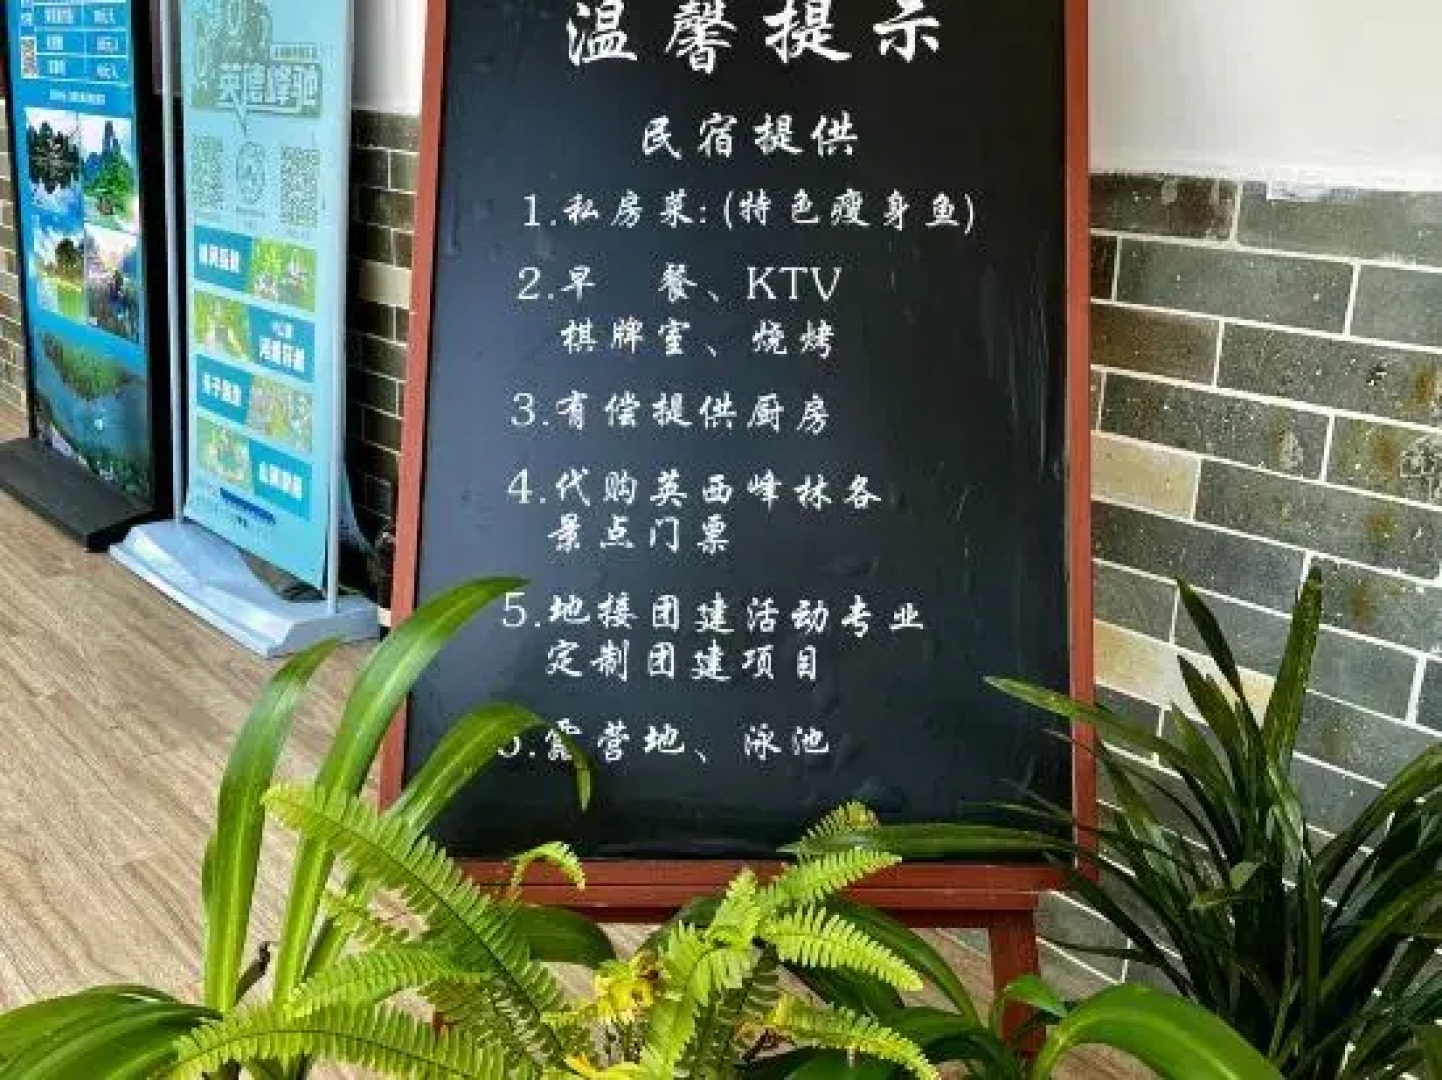 温馨提示
民宿提供
1.私房菜:(特色瘦身鱼)
2.早 餐、KTV
棋牌室、烧烤
3.有偿提供厨房
4.代购英西峰林各
景点门票
5.地接团建活动专业
定制团建项目
6.露营地、泳池
英德峰驰